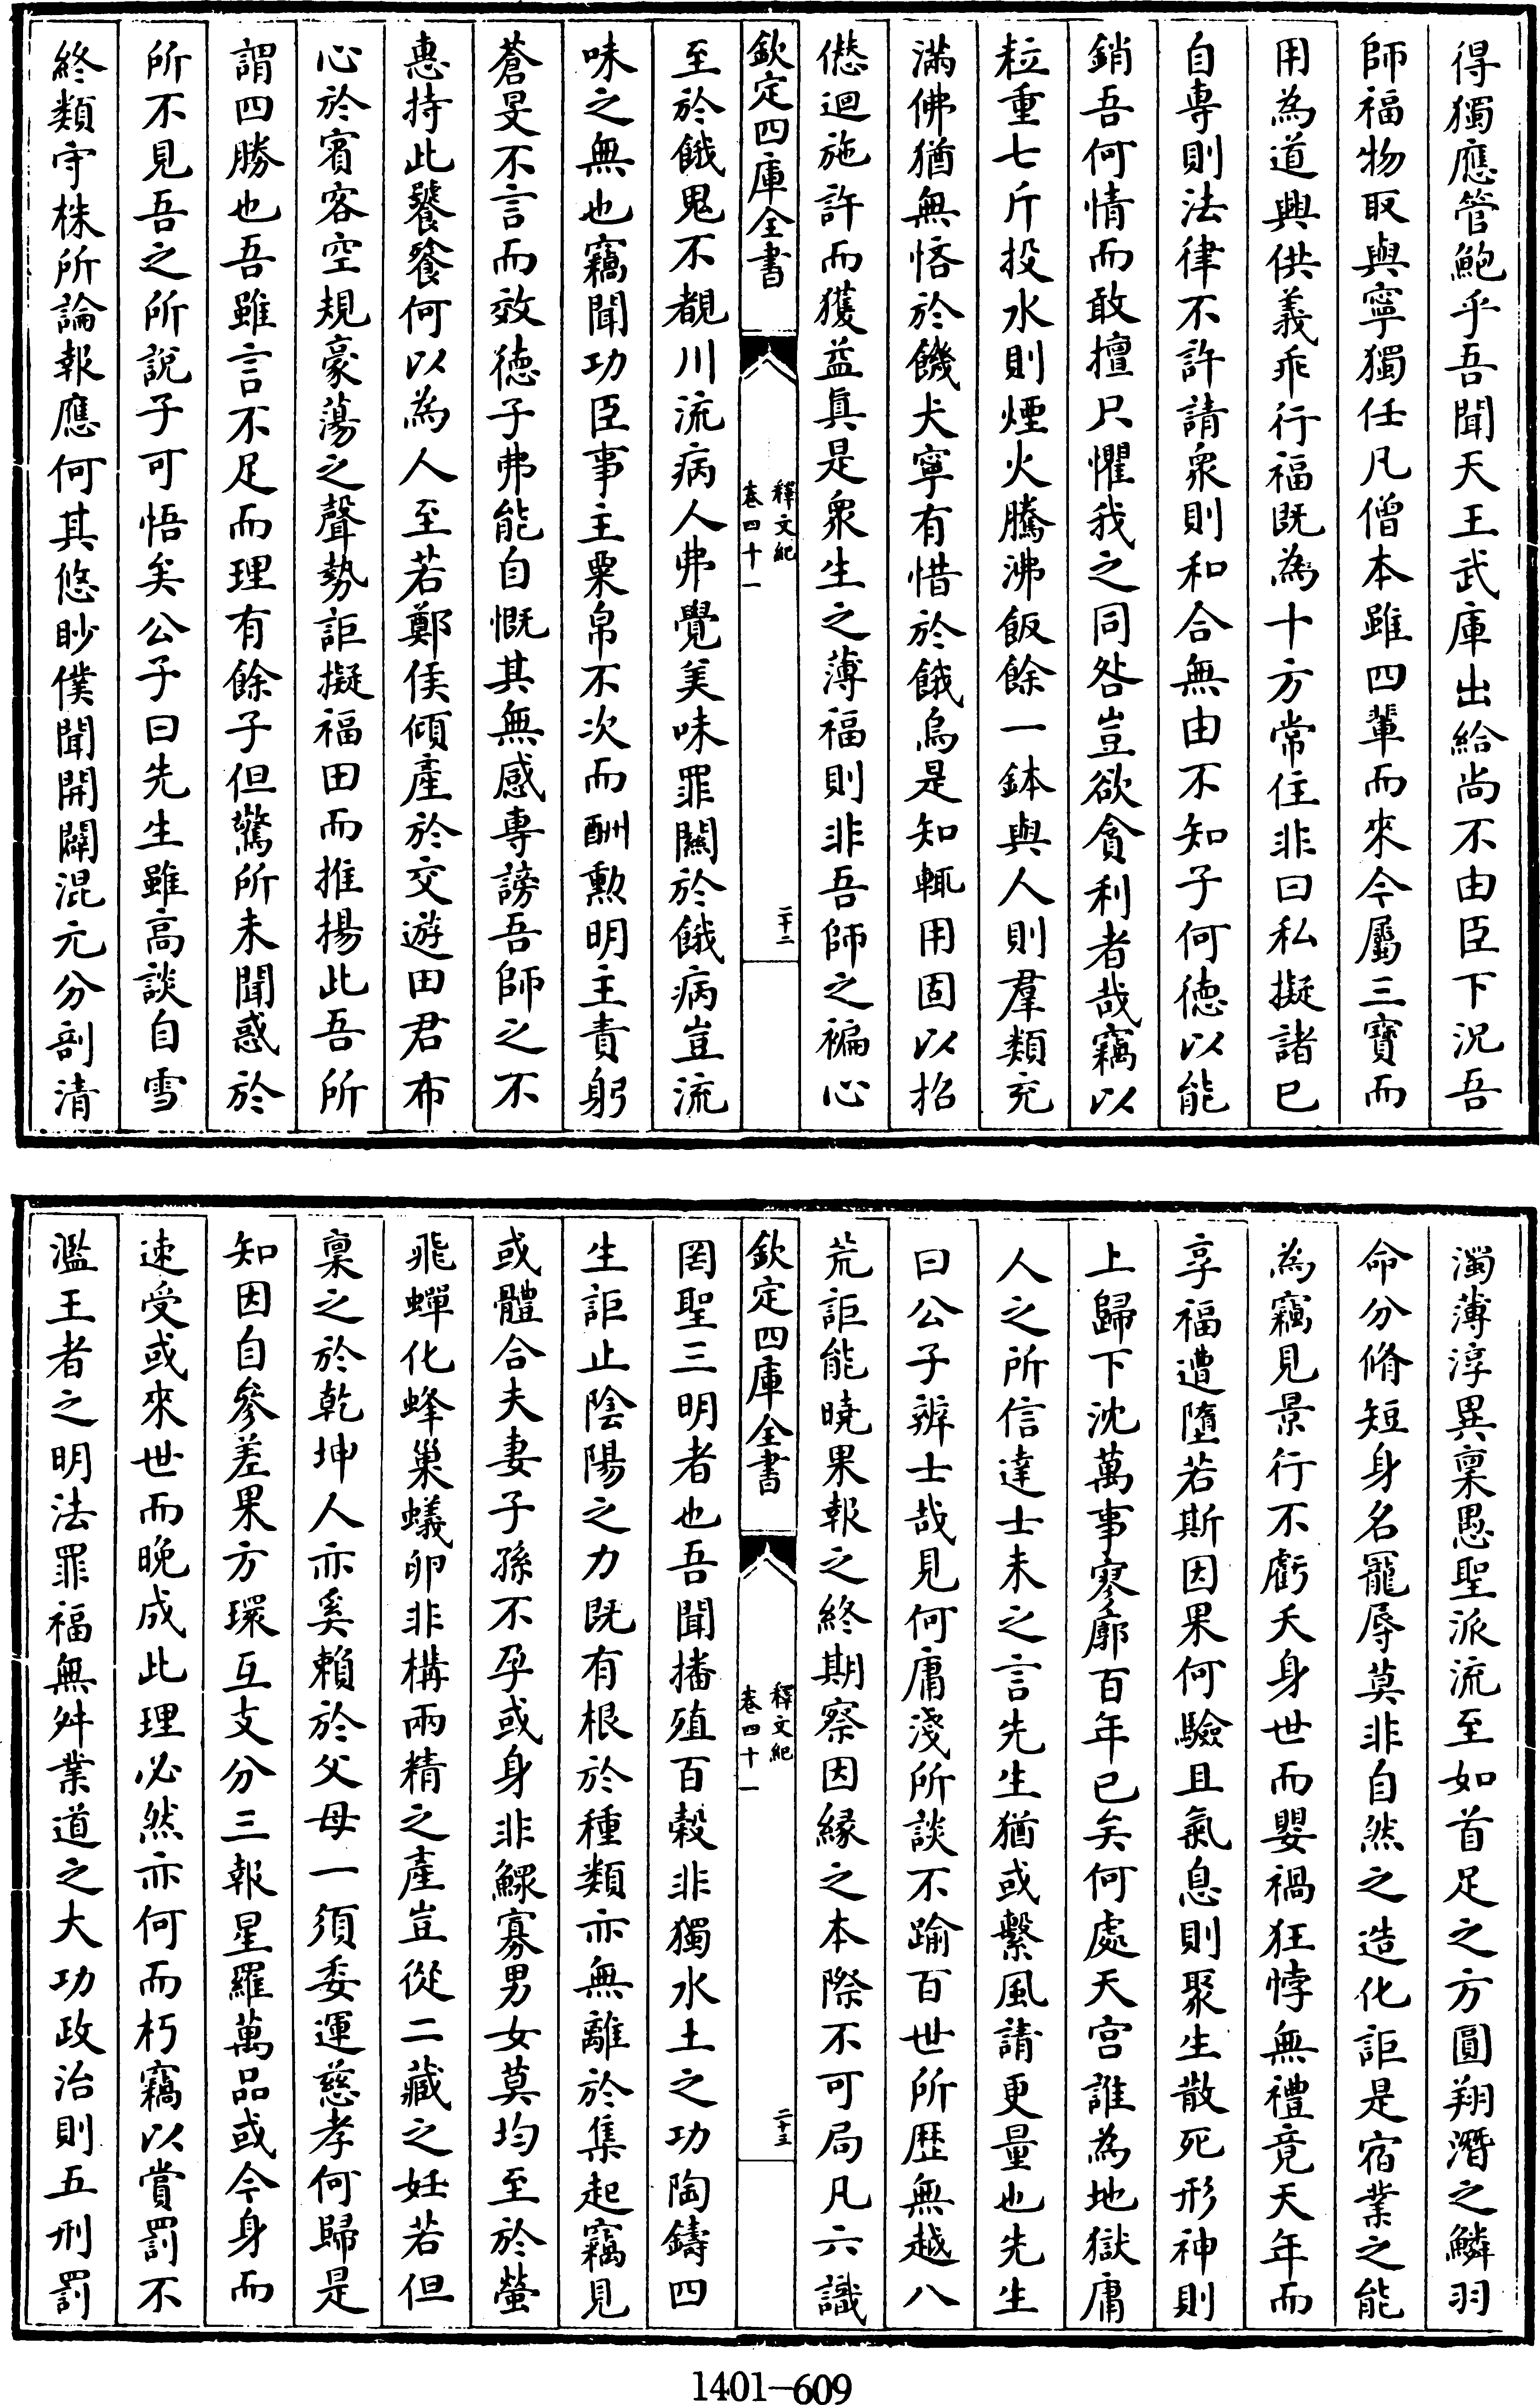 得獨應管鮑乎吾聞天王武庫出給尚不由臣下況吾
師福物取與寧獨任凡僧本雖四輩而來今屬三寶而
用為道興供義乖行福既為十方常住非曰私擬諸己
自專則法律不許請衆則和合無由不知子何徳以能
銷吾何情而敢擅只懼我之同咎豈欲貪利者哉竊以
粒重七斤投水則煙火騰沸飯餘一鉢與人則羣類充
滿佛猶無悋於饑犬寧有惜於餓烏是知輒用固以招
愆迴施許而獲益真是衆生之薄福則非吾師之褊心
欽定四庫全書
釋文紀
卷四十一
二十二
至於餓鬼不覩川流病人弗覺美味罪關於餓病豈流
味之無也竊聞功臣事主粟帛不次而酬勲明主責躬
蒼旻不言而效徳子弗能自慨其無感専謗吾師之不
惠持此饕餮何以為人至若鄭侯傾產於交遊田君布
心於賓客空規豪蕩之聲勢詎擬福田而推揚此吾所
謂四勝也吾雖言不足而理有餘子但驚所未聞惑於
所不見吾之所說子可悟矣公子曰先生雖高談自雪
終類守株所論報應何其悠眇僕聞開闢混元分剖清
濁薄淳異禀愚聖派流至如首足之方圓翔潛之鱗羽
命分脩短身名寵辱莫非自然之造化詎是宿業之能
為竊見景行不虧夭身世而嬰禍狂悖無禮竟天年而
享福遭墮若斯因果何驗且氣息則聚生散死形神則
上歸下沈萬事寥廓百年已矣何處天宮誰為地獄庸
人之所信達士未之言先生猶或繫風請更量也先生
曰公子辨士哉見何庸淺所談不踰百世所歷無越八
荒詎能曉果報之終期察因緣之本際不可局凡六識
欽定四庫全書
釋文紀
卷四十一
二十三
罔聖三明者也吾聞播殖百穀非獨水土之功陶鑄四
生詎止陰陽之力既有根於種類亦無離於集起竊見
或體合夫妻子孫不孕或身非鰥寡男女莫均至於螢
飛蟬化蜂巢蟻卵非構兩精之產豈從二藏之妊若但
禀之於乾坤人亦奚賴於父母一須委運慈孝何歸是
知因自參差果方環互支分三報星羅萬品或今身而
速受或來世而晚成此理必然亦何而朽竊以賞罰不
濫王者之明法罪福無舛業道之大功政治則五刑罰
1401—609